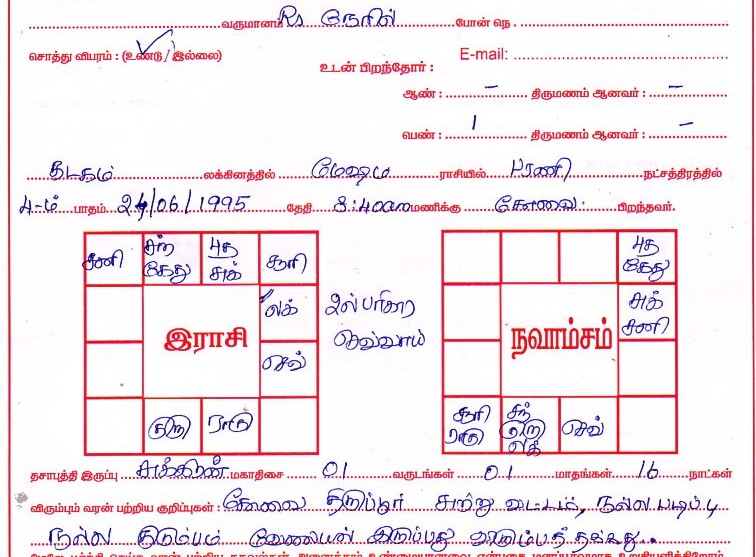 வருமானம் Rs நேரில் போன் நெ.
சொத்து விபரம் : (உண்டு / இல்லை) E-mail:
உடன் பிறந்தோர் :
ஆண் : – திருமணம் ஆனவர் : –
பெண் : 1 திருமணம் ஆனவர் : –
கடகம் லக்கினத்தில் மேஷம் ராசியில் பரணி நட்சத்திரத்தில்
4-ம் பாதம் 24/06/1995 தேதி 8:40am மணிக்கு கோவை பிறந்தவர்.
சனி சந் கேது புத சுக் சூரி
லக்
செவ்
குரு ராகு
இராசி
2ல் பரிகார
செவ்வாய்
புத கேது
சுக் சனி
சூரி ராகு சந் குரு லக் செவ்
நவாம்சம்
தசாபுத்தி இருப்பு சுக்கிரன் மகாதிசை 01 வருடங்கள் 01 மாதங்கள் 16 நாட்கள்
விரும்பும் வரன் பற்றிய குறிப்புகள் : கோவை திருப்பூர் சுற்று வட்டம், நல்ல படிப்பு
நல்ல குடும்பம் வேலையில் இருப்பது விரும்பத்தக்கது..